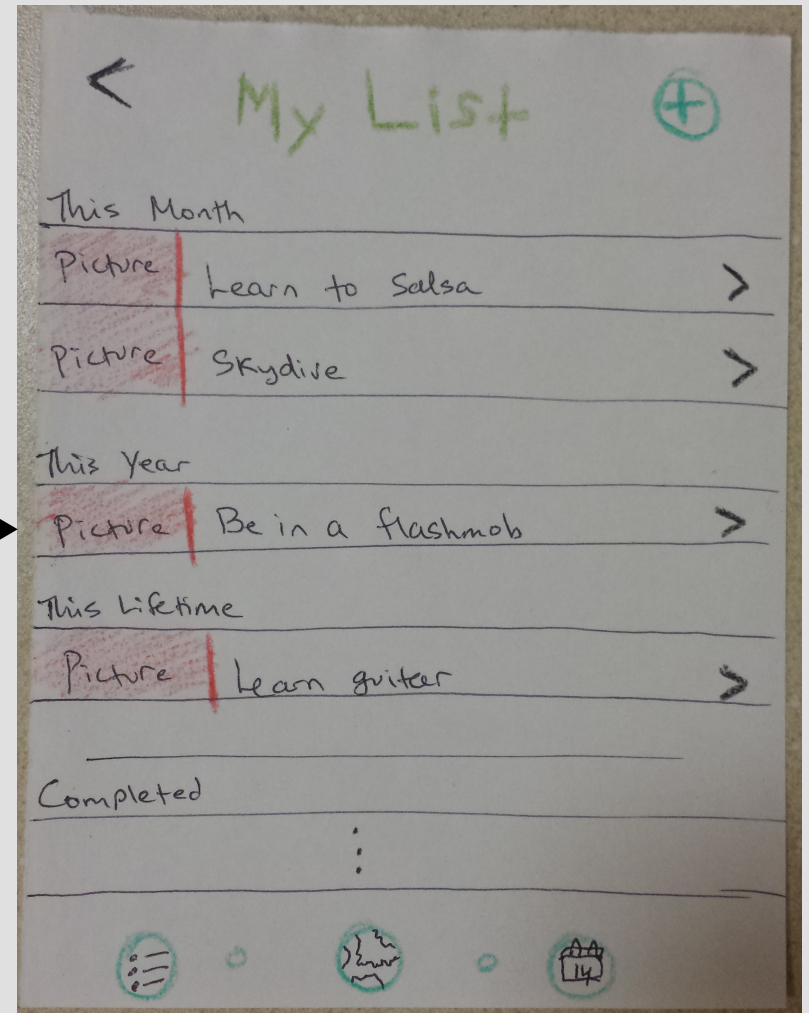 < My List +
This Month
Picture Learn to Salsa >
Picture Skydive >
This Year
Picture Be in a flashmob >
This Lifetime
Picture Learn guitar >
Completed
⋮
14